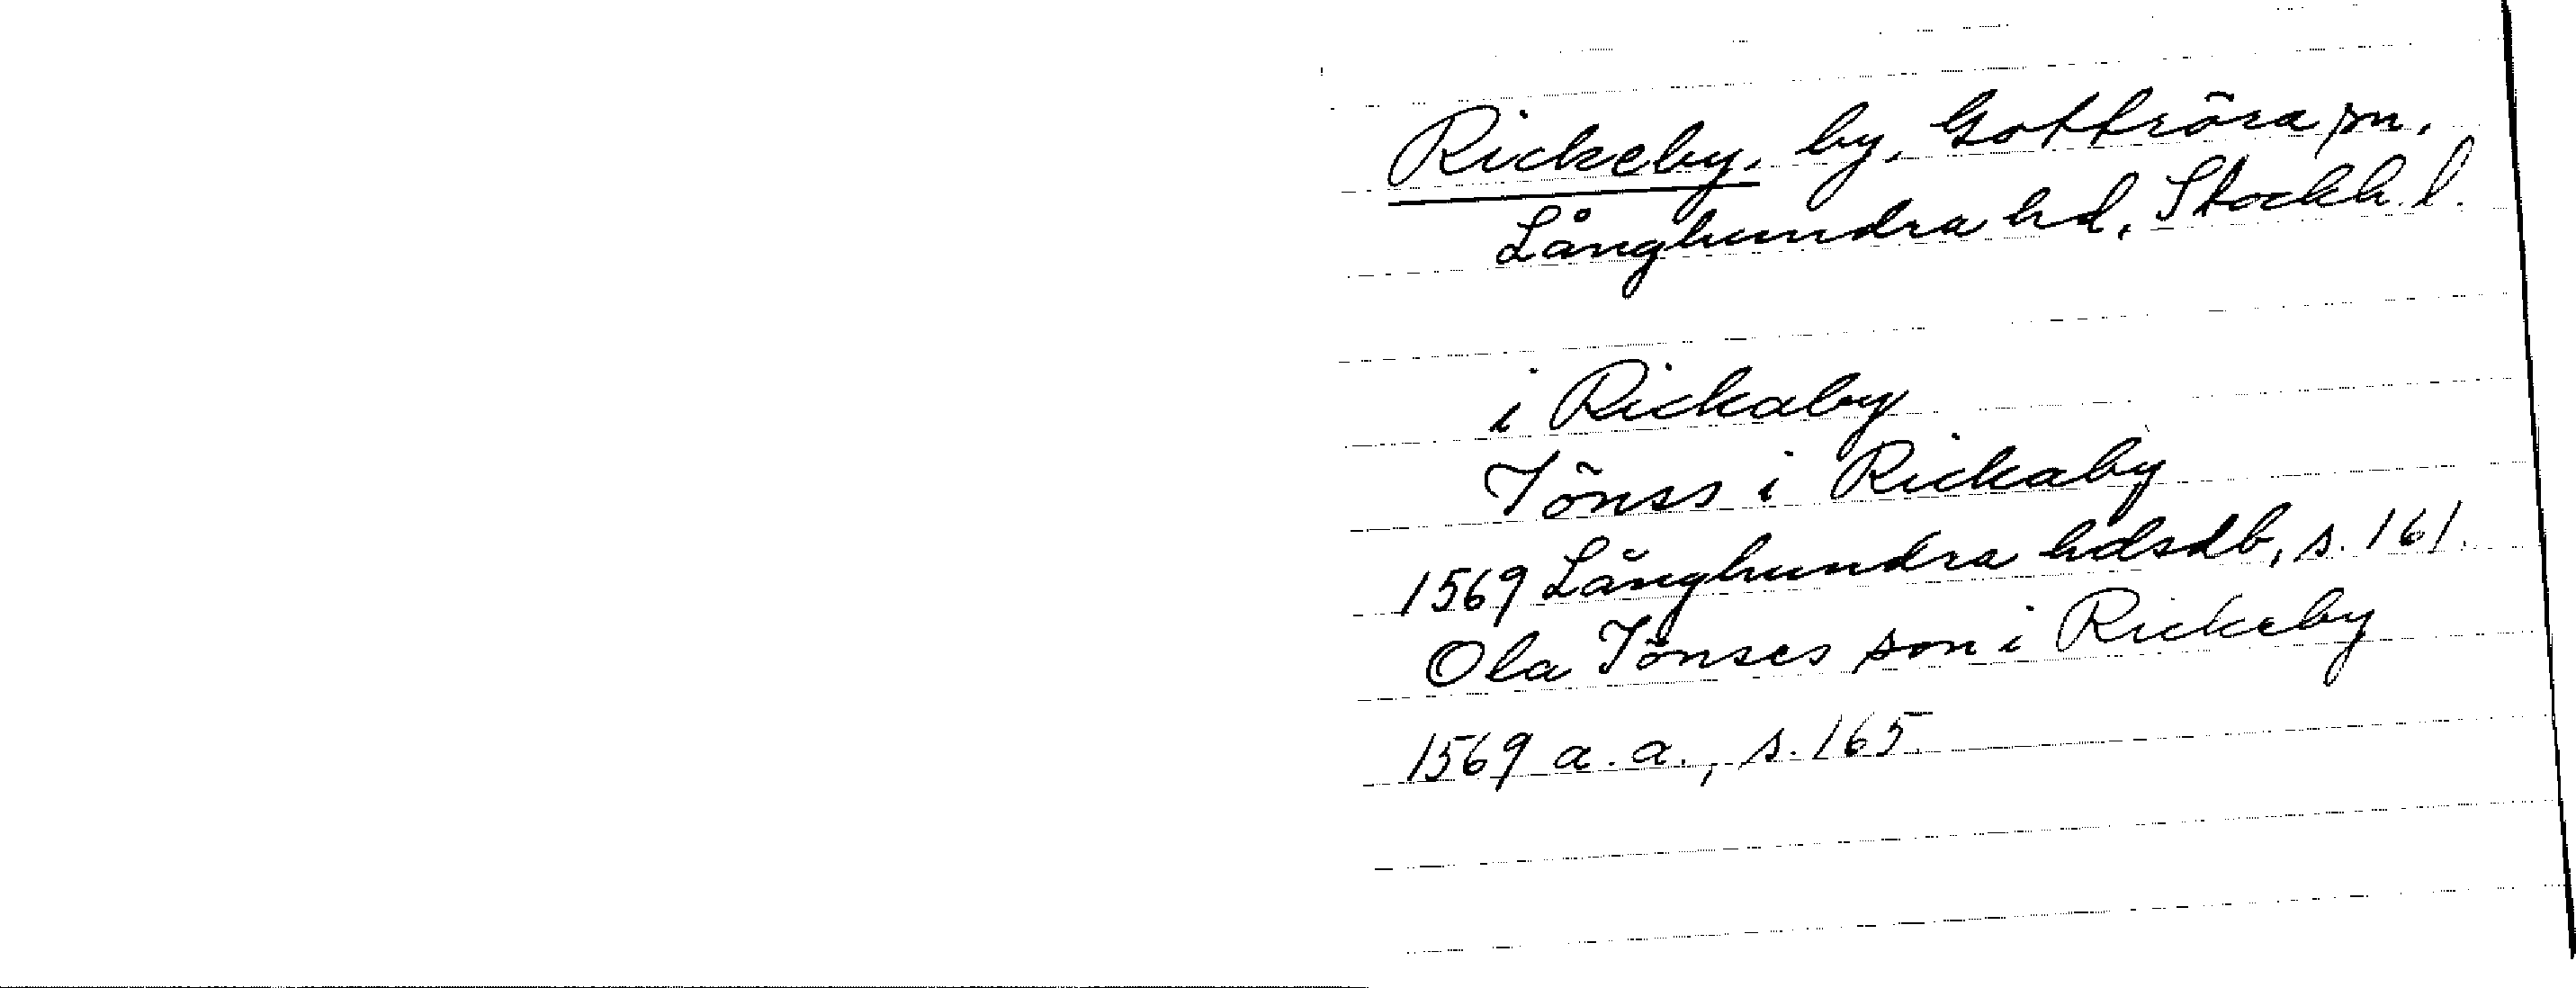 Rickeby, by, Gottröra sn.
Långhundra hd, Stockh. l.
i Rickaby
Jönss i Rickaby
1569 Långhundra hdsdb, s. 161.
Ola Jönses son i Rickeby
1569 a.a., s. 165.